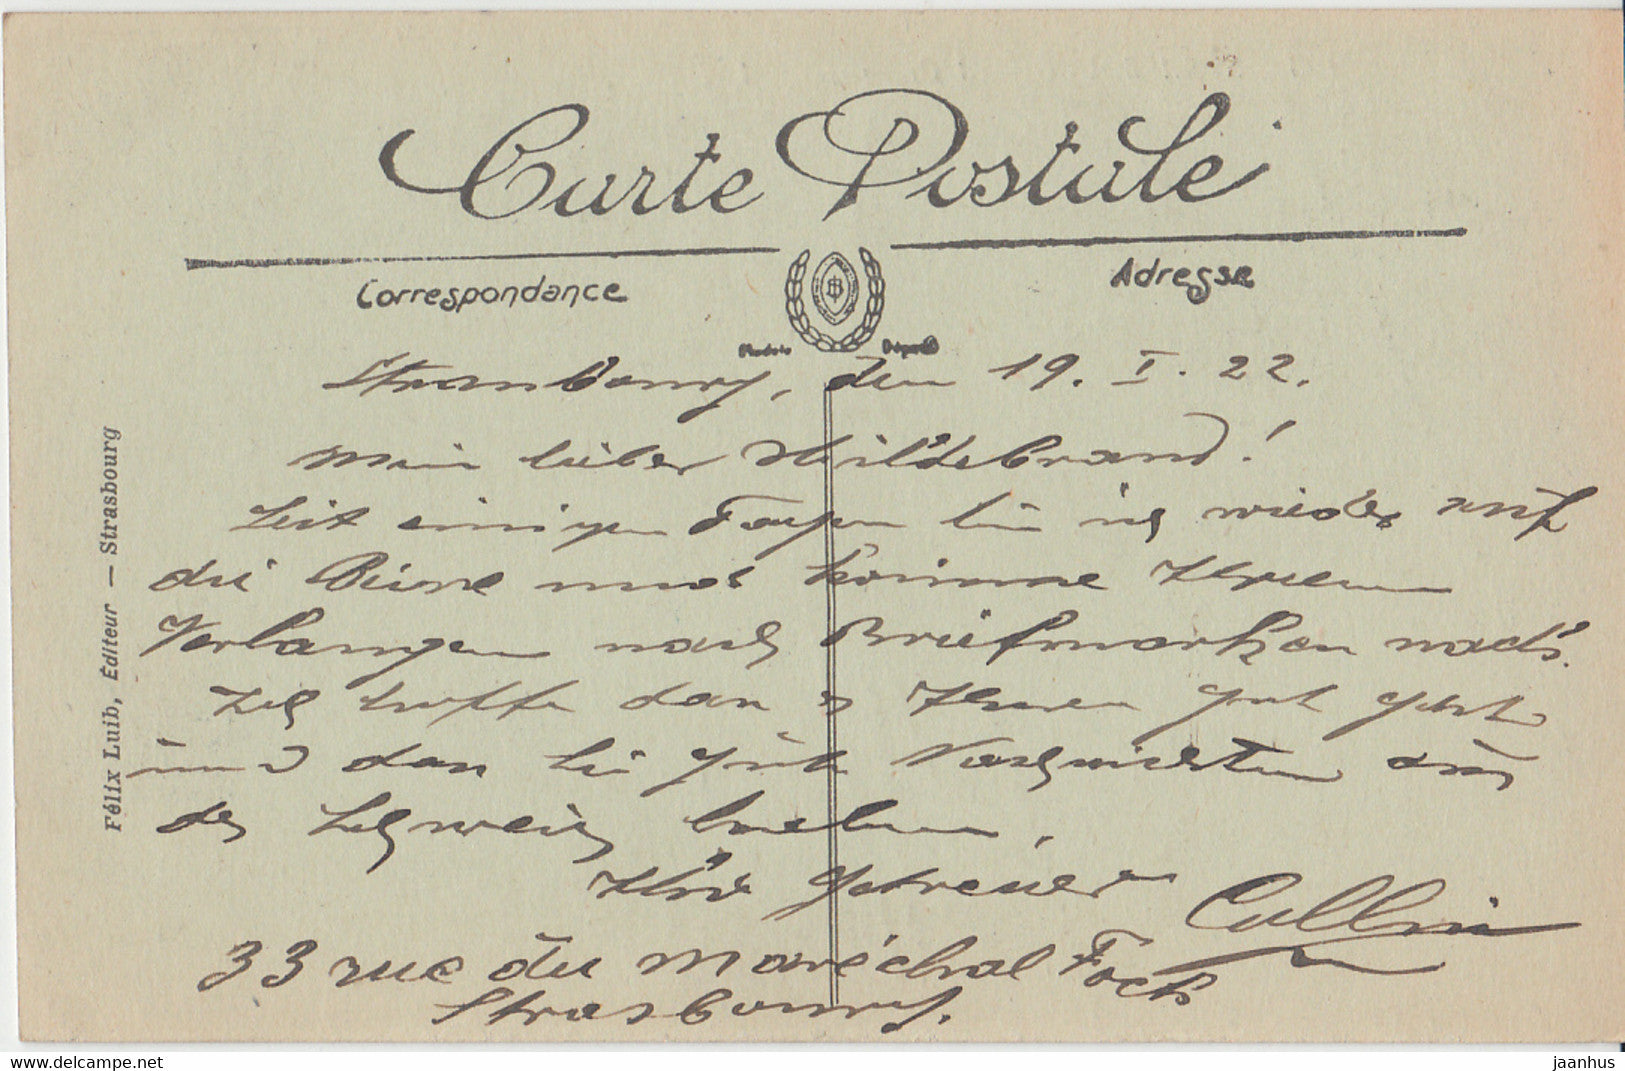 Carte Postale
Correspondance
Adresse
Modèle Déposé
Félix Luib, Éditeur — Strasbourg
Strassbourg, den 19. I. 22.
Mein lieber Hildebrand!
Seit einigen Tagen bin ich wieder auf
die Beine und komme Ihrem
Verlangen nach Briefmarken nach.
Ich hoffe dass es Ihnen gut geht
und dass Sie gute Nachrichten aus
der Schweiz haben.
Ihr getreuer
Collin
33 rue du Maréchal Foch
Strasbourg.
www.delcampe.net
jaanhus